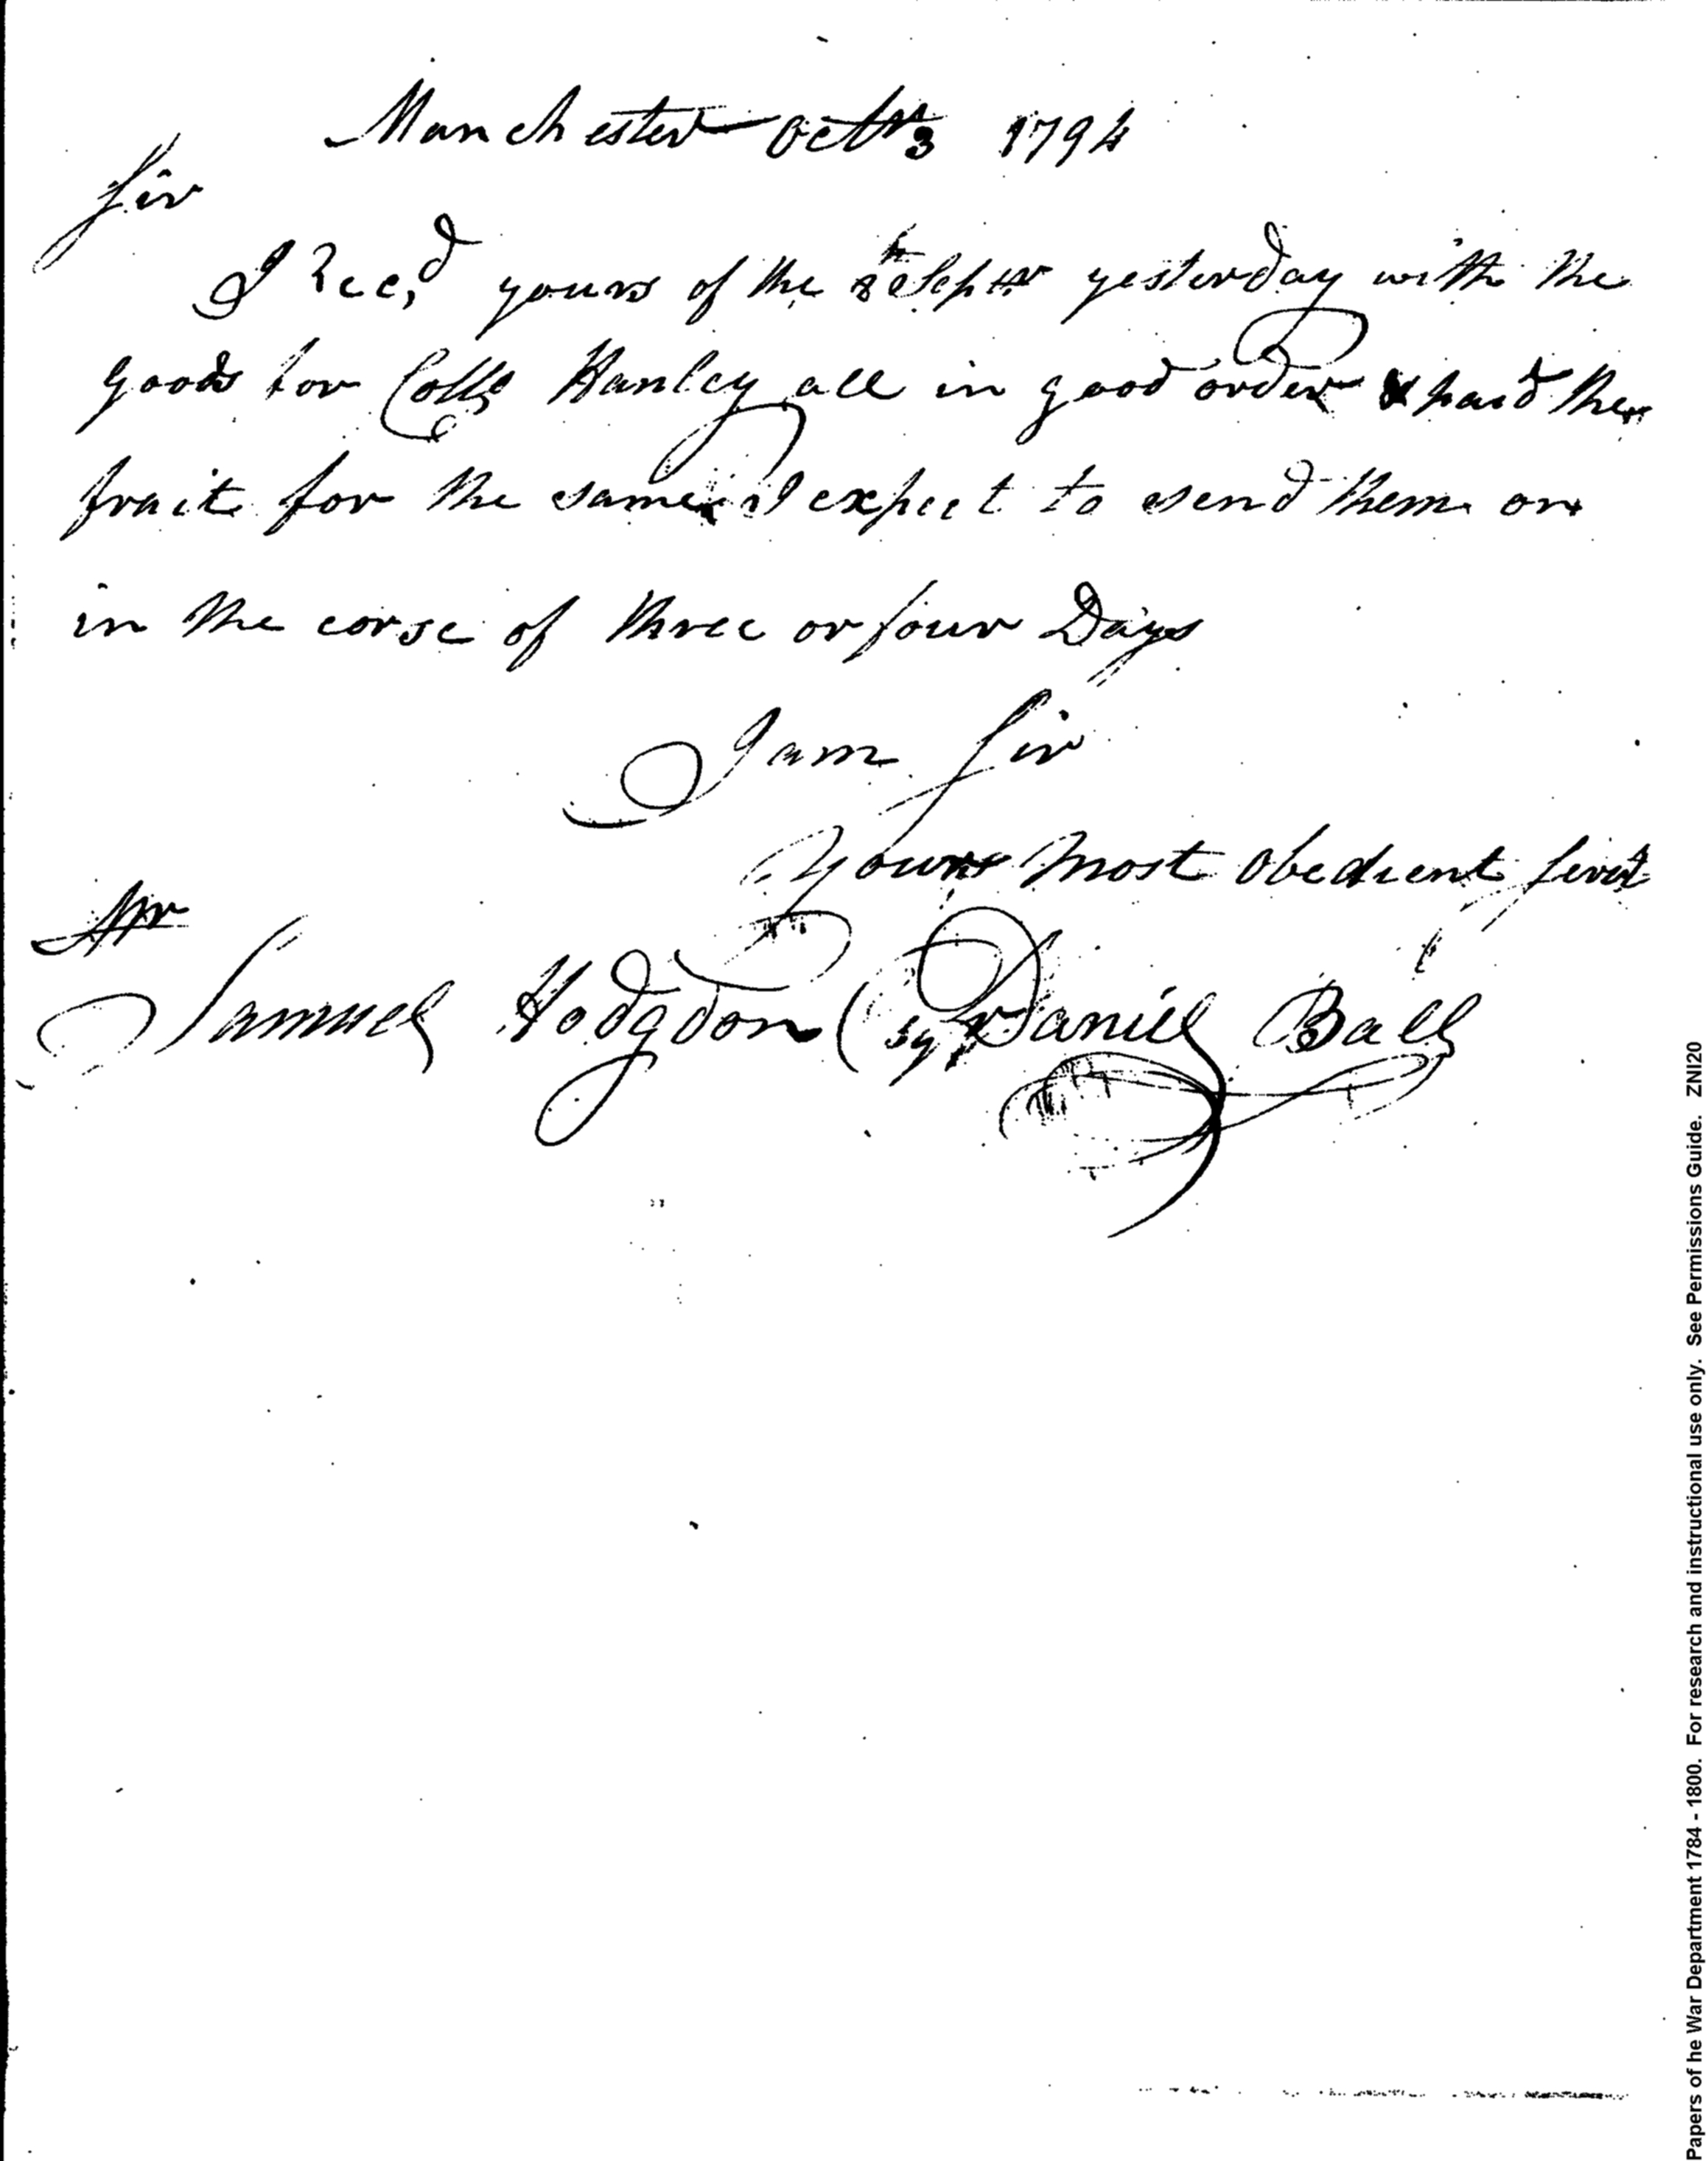 Manchester Octr 3 1794
Sir
I Recd, yours of the 8th Septr yesterday with the
goods for Collo Hanley all in good order & paid the
frait for the same I expect to send them on
in the corse of three or four Days
I am Sir
Yours most obedient Servt
Mr
Samuel Hodgdon Esqr Daniel Ball
Papers of he War Department 1784 - 1800. For research and instructional use only. See Permissions Guide. ZNI20